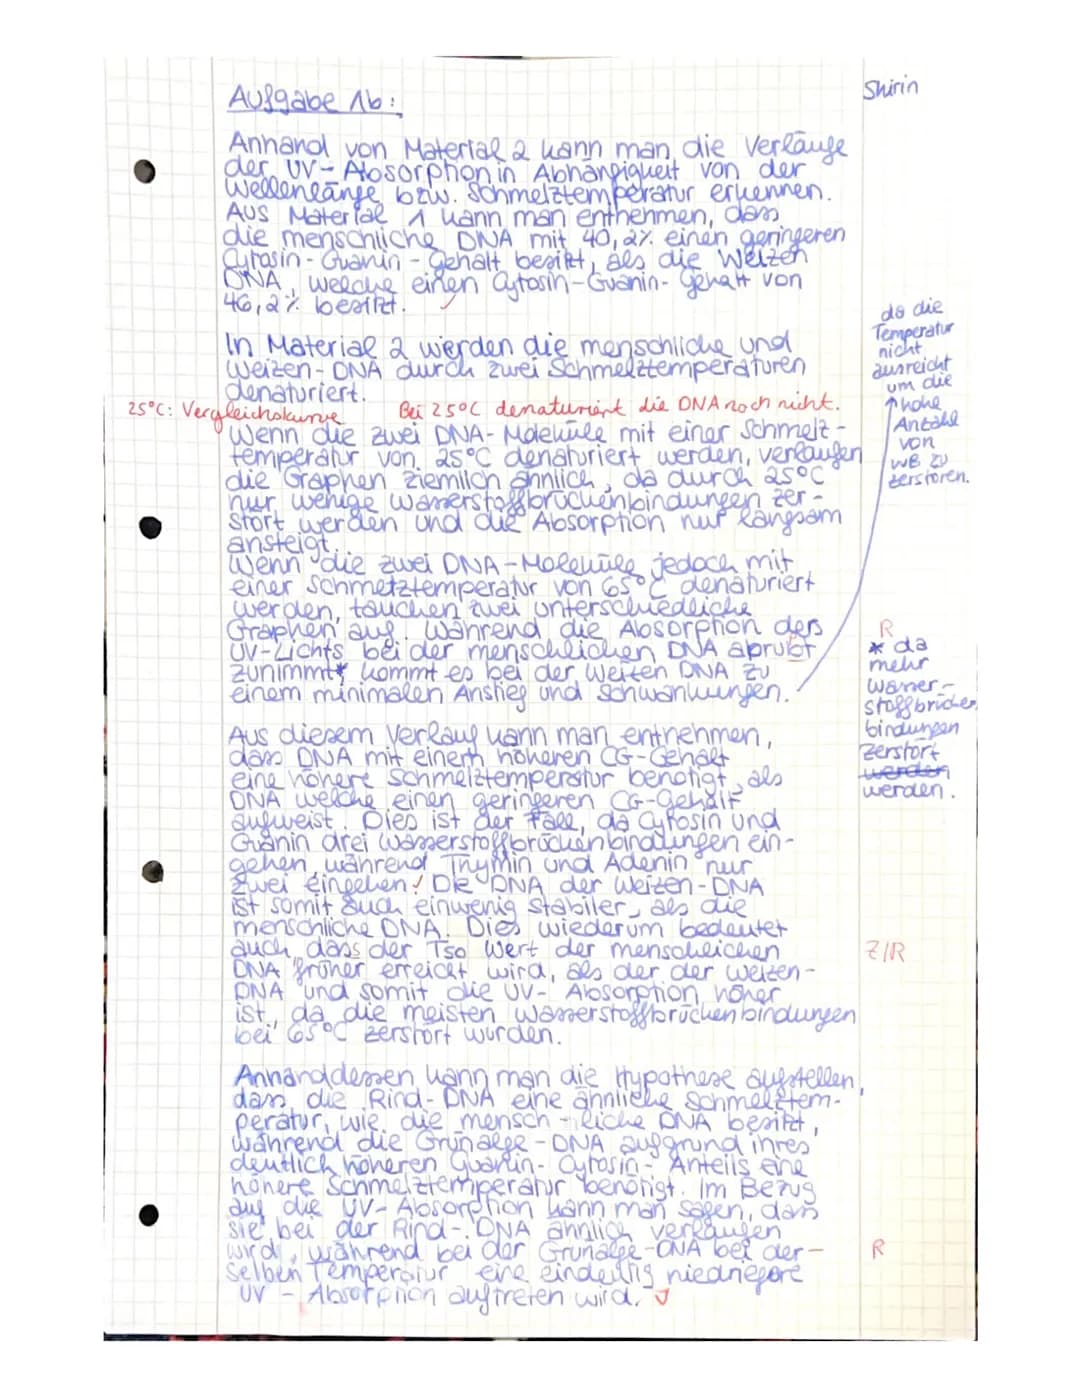 Aufgabe 1b:
Shirin
Anhand von Material 2 kann man die Verläufe
der UV-Absorption in Abhängigkeit von der
Wellenlänge bzw. Schmelztemperatur erkennen.
Aus Material 1 kann man entnehmen, dass
die menschliche DNA mit 40,2% einen geringeren
Cytosin-Guanin-Gehalt besitzt, als die Weizen
DNA, welche einen Cytosin-Guanin-Gehalt von
46,2% besitzt.
In Material 2 werden die menschliche und
Weizen-DNA durch zwei Schmelztemperaturen
denaturiert.
25°C: Vergleichskurve Bei 25°C denaturiert die DNA noch nicht.
Wenn die zwei DNA-Moleküle mit einer Schmelz-
temperatur von 25°C denaturiert werden, verlaufen
die Graphen ziemlich ähnlich, da durch 25°C
nur wenige Wasserstoffbrückenbindungen zer-
stört werden und die Absorption nur langsam
ansteigt.
Wenn die zwei DNA-Moleküle jedoch mit
einer Schmelztemperatur von 65°C denaturiert
werden, tauchen zwei unterschiedliche
Graphen auf. Während die Absorption des
UV-Lichts bei der menschlichen DNA abrubt
zunimmt*, kommt es bei der Weizen DNA zu
einem minimalen Anstieg und Schwankungen.
da die
Temperatur
nicht
ausreicht
um die
hohe
Anzahl
von
WB zu
zerstören.
R
* da
mehr
Wasser-
stoffbrücken
bindungen
zerstört
werden
werden.
Aus diesem Verlauf kann man entnehmen,
dass DNA mit einem höheren CG-Gehalt
eine höhere Schmelztemperatur benötigt, als
DNA welche einen geringeren CG-Gehalt
aufweist. Dies ist der Fall, da Cytosin und
Guanin drei Wasserstoffbrückenbindungen ein-
gehen, während Thymin und Adenin nur
zwei eingehen. Die DNA der Weizen-DNA
ist somit auch einwenig stabiler, als die
menschliche DNA. Dies wiederum bedeutet
auch, dass der T50 Wert der menschlichen
DNA früher erreicht wird, als der der Weizen-
DNA und somit die UV-Absorption höher
ist, da die meisten Wasserstoffbrückenbindungen
bei 65°C zerstört wurden.
Z/R
Anhanddessen kann man die Hypothese aufstellen,
dass die Rind-DNA eine ähnliche Schmelztem-
peratur, wie die mensch-liche DNA besitzt,
während die Grünalge-DNA aufgrund ihres
deutlich höheren Guanin-Cytosin-Anteils eine
höhere Schmelztemperatur benötigt. Im Bezug
auf die UV-Absorption kann man sagen, dass
sie bei der Rind-DNA ähnlich verlaufen
wird, während bei der Grünalge-DNA bei der-
selben Temperatur eine eindeutig niedriegere
UV-Absorption auftreten wird.
R